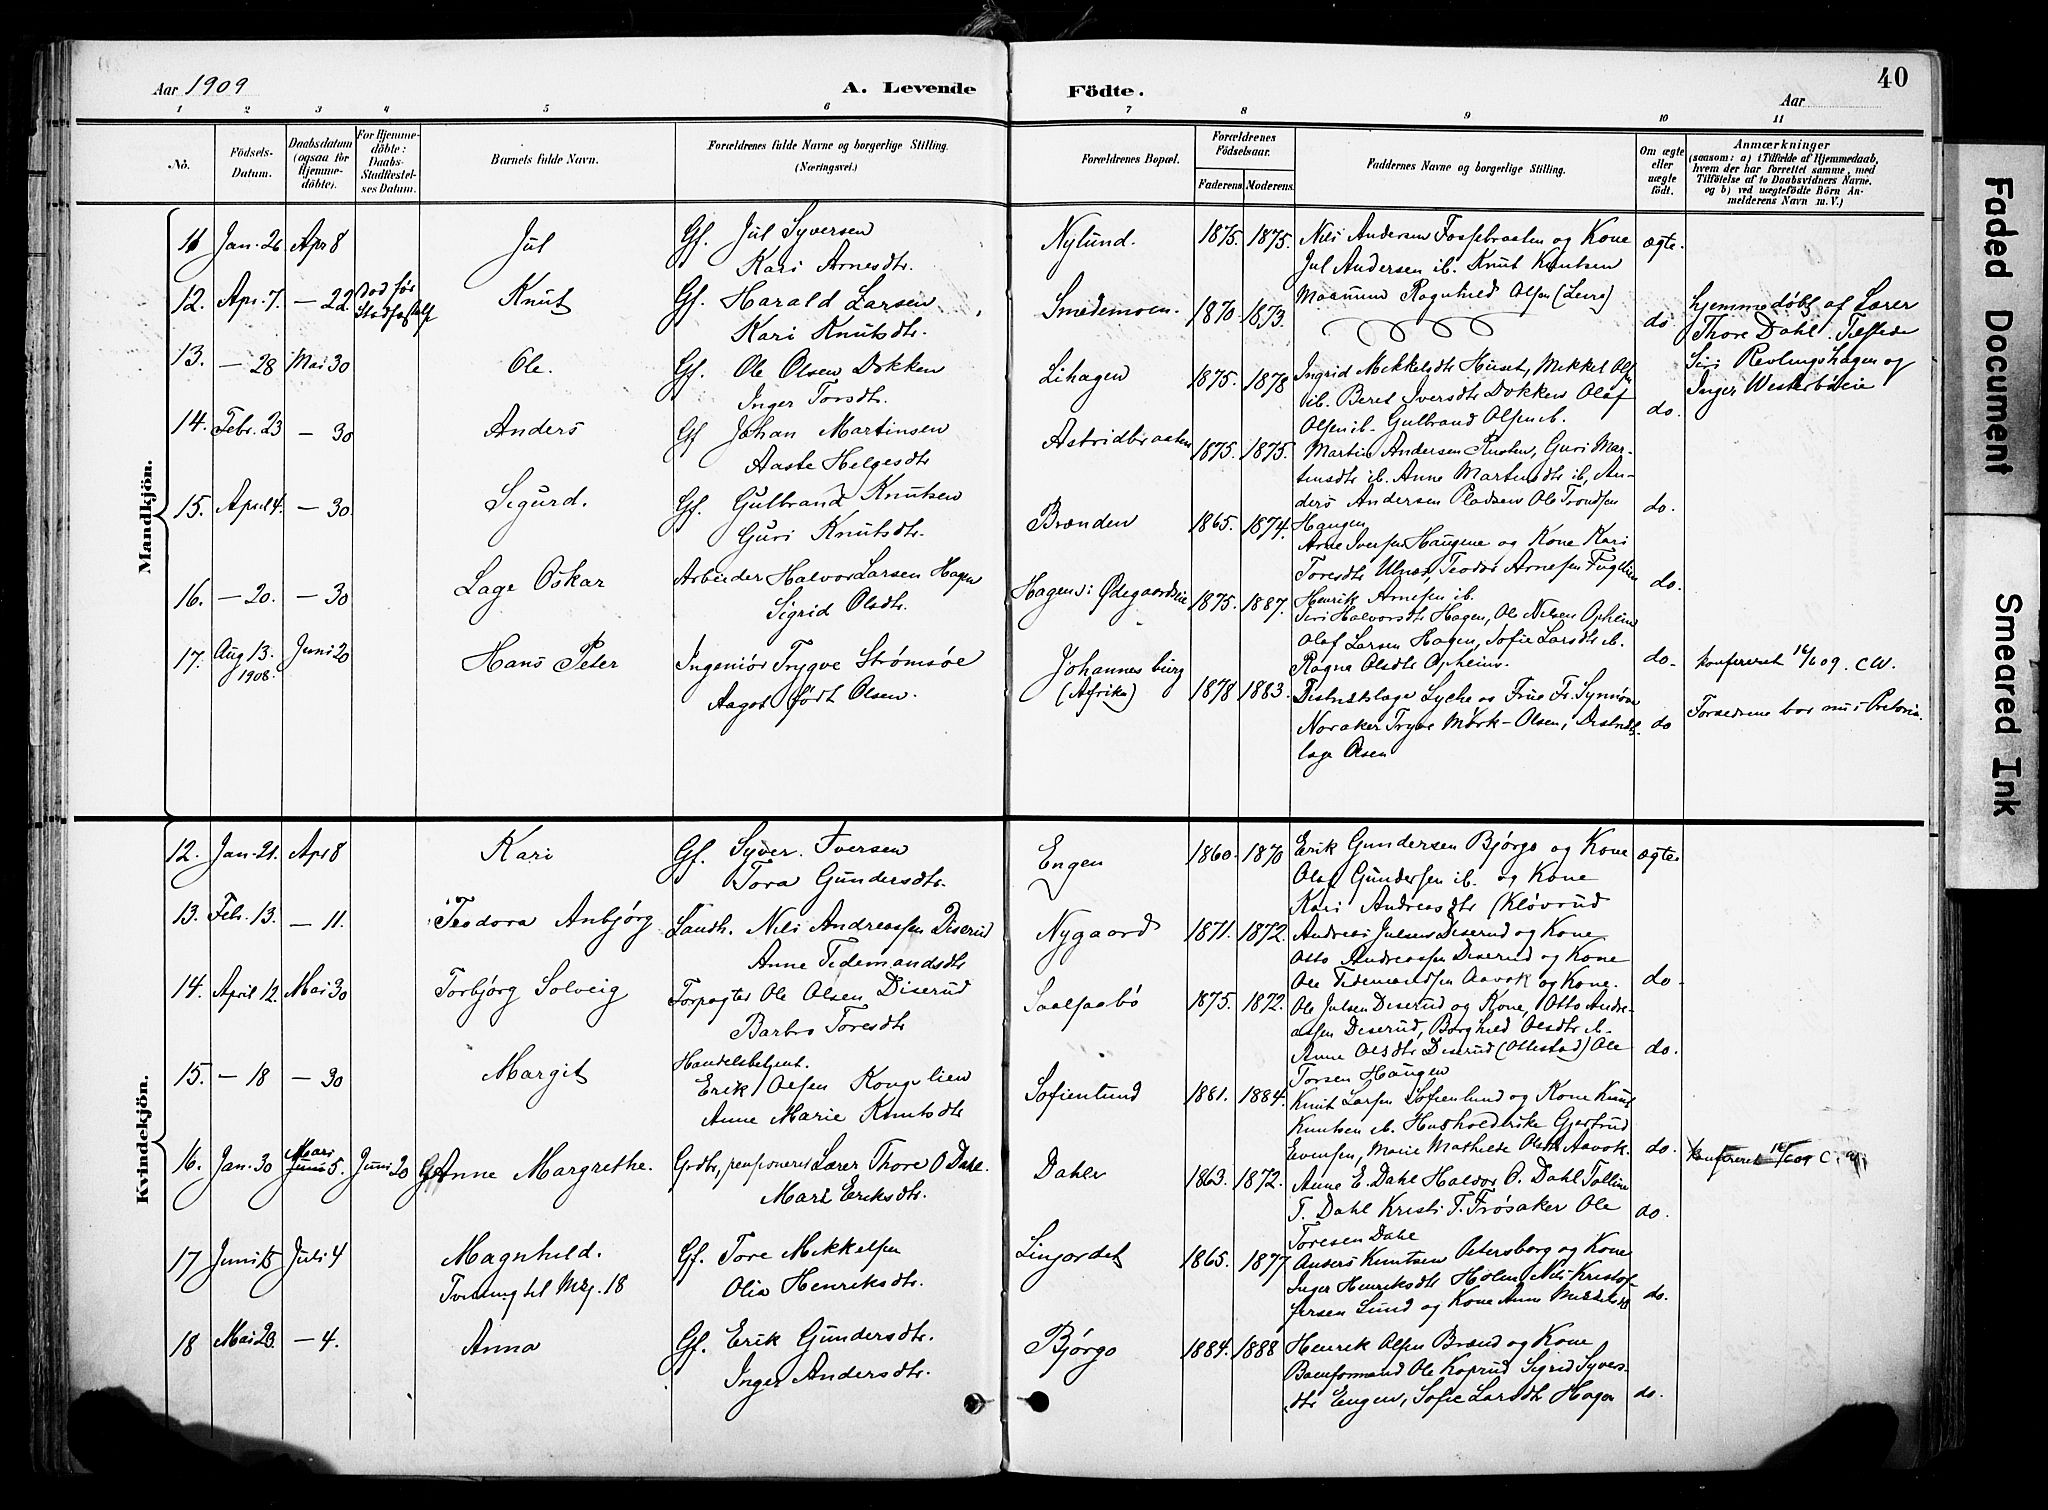 Aar 1909
A. Levende
Födte.
Aar
40
1 2 3 4 5 6 7 8 9 10 11
Nö.
Födsels-Datum.
Daabsdatum (ogsaa for Hjemmedöbte).
For Hjemmedöbte: Daabs-Stadfæstelses Datum.
Barnets fulde Navn.
Forældrenes fulde Navne og borgerlige Stilling.
(Næringsvei.)
Forældrenes Bopæl.
Forældrenes Födselsaar.
Faderens. Moderens.
Faddernes Navne og borgerlige Stilling.
Om ægte eller uægte födt.
Anmærkninger
(saasom: a) i Tilfælde af Hjemmedaab,
hvem der har forrettet samme, med
Tilföielse af to Daabsvidners Navne,
og b) ved uægtefödte Börn An-
melderens Navn m. V.)
Mandkjön.
11 Jan. 26 Apr 8 Jul Gf. Jul Syversen Nylund. 1875. 1875. Nils Andersen Fossebraaten og Kone ægte.
Kari Arnesdtr. Jul Andersen ib. Knut Knutsen
12. Apr. 7. — 22. Død før Knut Gf. Harald Larsen Smedemoen. 1870. 1873. Ragnhild Olsen do hjemmedøbt af Lærer
Kari Knutsdtr. Thore Dahl. Tilstede
13. — 28 Mai 30 Ole. Gf. Ole Olsen Dokken Lihagen 1875. 1878 Ingrid Mikkelsdtr Huset, Mikkel Olsen Siri Revlingshagen og
Inger Torsdtr. ib. Beret Iversdtr Dokken Olaf do. Inger Westerbøleie
Olsen ib. Gulbrand Olsen ib.
14. Febr. 23 — 30 Anders Gf Johan Martinsen Astridbraaten 1875. 1875. Martin Andersen Guri Mar-
Aaste Helgesdtr tinsdtr ib. Anne Martinsdtr ib, An-
ders Andersen Pladsen Ole Trondsen do.
Haugen
15. April 4. — 30. Sigurd. Gf. Gulbrand Knutsen Brænden 1865. 1874. Arne Iversen Haugene og Kone Kari
Guri Knutsdtr. Toresdtr Ulnes, Teodor Arnesen Fugllien do.
Henrik Arnesen ib.
16. — 20. — 30 Lage Oskar Arbeider Halvor Larsen Hagen Hagen i Ødegaardslie 1875. 1887. Siri Halvorsdtr Hagen, Ole Nilsen Opheim
Sigrid Olsdtr. Olaf Larsen Hagen, Sofie Larsdtr ib.
Ragna Olsdtr Opheim. do.
17. Aug 13. 1908. Juni 20 Hans Peter Ingeniør Trygve Strømsøe Johannesburg konfereret 16/6 09. CW.
Aagot født Olsen. (Afrika) 1878 1883. Distriktslæge Lyche og Frue Fr. Synnøve Forældrene bor nu i Pretoria.
Noraker Trygve Mørk-Olsen, Distrikts- do
læge Olsen
Kvindekjön.
12. Jan. 21. Apr 8 Kari Gf. Syver Iversen Engen 1860. 1870 Erik Gundersen Bjørgo og Kone ægte
Tora Gundersdtr. Olaf Gundersen ib. og Kone
Kari Andreasdtr (Kløvrud
13. Feb. 13. — 11. Teodora Anbjørg Landh. Nils Andreassen Diserud Nygaard 1871. 1872. Andreas Julsen Diserud og Kone
Anne Tidemandsdtr Otto Andreassen Diserud og Kone
Ole Tidemandsen Aavok og Kone. do.
14. April 12. Mai 30 Torbjørg Solveig Forpagter Ole Olsen Diserud Saalsaabø 1875. 1872. Ole Julsen Diserud og Kone, Otto Andre-
Barbro Toresdtr assen Diserud, Borghild Olsdtr ib.
Anne Olsdtr Diserud (Ottestad) Ole do.
Torsen Haugen
15. — 18 — 30 Margit Handelsbetjent. Sofienlund 1881. 1884. Knut Larsen Sofienlund og Kone Knut
Erik Olsen Kongslien Knutsen ib. Husholderske Gjertrud
Anne Marie Knutsdtr Evensen, Marie Mathilde Olsdtr Aavok. do.
16. Jan. 30 Mari Juni 5. Juni 20 Anne Margrethe. Grdbr, pensioneret Lærer Thore O Dahl. Dahle 1863. 1872. Anne E. Dahl Haldor O. Dahl Tolline konfereret 16/6 09 C.W
Mari Eriksdtr. T. Dahl Kristi T. Frøsaker Ole do.
Toresen Dahl
17 Juni 15 Juli 4 Magnhild. Gf. Tore Mikkelsen Linjordet 1865. 1877 Anders Knutsen Petersborg og Kone
Tvilling til No. 18 Olia Henriksdtr. Inger Henriksdtr Holen Nils Kristof-
fersen Lund og Kone Anne do.
18 Mai 23. — 4. Anna Gf. Erik Gundersdtr. Bjørgo 1884. 1888 Henrik Olsen Brænd og Kone
Inger Andersdtr. Banformand Ole Koprud Sigrid Syvers-
dtr Engen, Sofie Larsdtr Hagen do.
Faded Document
Smeared Ink